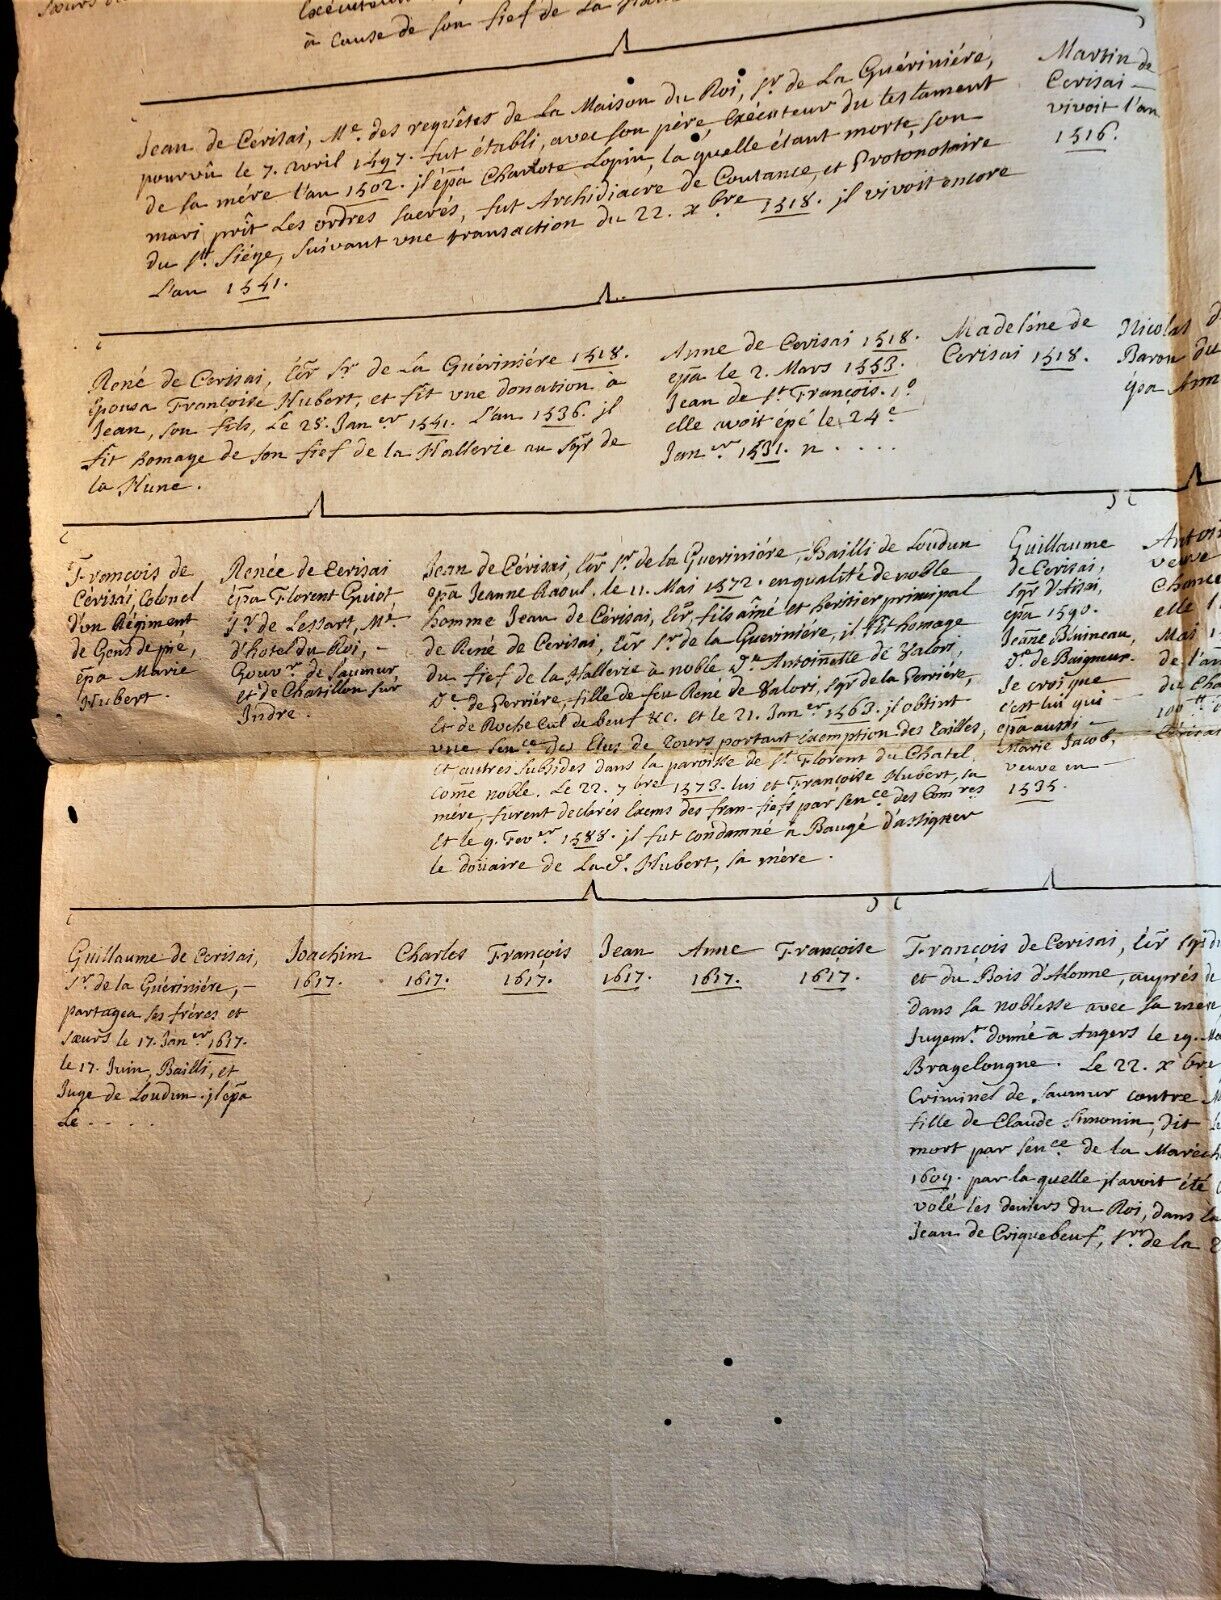 à cause de son fief de La
Jean de Cérisai, Me. des requêtes de La Maison du Roi, sr. de La Guériniére,
pourvû le 7. avril 1497. fut établi, avec son pére, Exécuteur du testament
de sa mére l'an 1502. jl épa Charlote Lopin, la quelle étant morte, son
mari prît Les ordres sacrés, fut Archidiacre de Coutance, et Protonotaire
du st. Siége, suivant une transaction du 22. xbre 1518. jl vivoit encore
L'an 1541.
Martin de
Cerisai –
vivoit l'an
1516.
René de Cerisai, Ecr. sr. de La Guériniére 1518.
épousa Françoise Hubert, et fit une donation à
Jean, son fils, Le 28. Janer 1541. L'an 1536. jl
fit homage de son fief de la Hallerie au sgr de
la Hune.
Anne de Cerisai 1518.
epa le 2. Mars 1553.
Jean de st. François. 1o
elle avoit épé le 24e
Janer 1531. n . . . .
Madeléne de
Cerisai 1518.
Nicolas d
Baron du
épa Ann
François de
Cérisai, Colonel
d'un Régiment
de Gens de pié,
épa Marie
Hubert.
Renée de Cerisai
épa Florent Guiot
sr. de Lessart, Me.
d'hotel du Roi, –
Gouvr. de Saumur,
et de Chatillon sur
Jndre.
Jean de Cérisai, Ecr sr. de la Gueriniére, Bailli de Loudun
epa Jeanne Raoul. le 11. Mai 1572. en qualité de noble
homme Jean de Cérisai, Ecr, fils aîné et héritier principal
de René de Cerisai, Ecr sr. de la Gueriniére, il fit homage
du fief de la Hallerie à noble de. Antoinette de Valori,
de. de Perriére, fille de feu René de Valori, sgr. de la Perriére,
et de Roche Cul de beuf &c. et le 21. Janer 1563. jl obtint
une sence des Elus de Tours portant Exemption des Tailles,
et autres subsides dans la paroisse de st. Florent du Chatel
come noble. Le 22. 7bre 1573. lui et Françoise Hubert, sa
mére, furent declarés Exems des fran-fiefs par sence. des Comres
Et le 9. Fever 1588. jl fut condamné à Baugé d'assigner
le doüaire de La de. Hubert, sa mére.
Guillaume
de Cerisai,
sgr. d'Aisai,
épa 1590.
Jeane Bluineau,
de. de Baigneur.
Je croi que
c'est lui qui –
epa aussi –
Marie Jacob,
veuve en –
1535.
Antoin
veuve
Chance
elle
Mai 1
de l'an
du Cha
100tt
Cérisai
Guillaume de Cerisai,
sr. de la Guériniére, –
partagea ses fréres et
sœurs le 17. Janer 1617.
le 17. Juin, Bailli, et
Juge de Loudun. jl épa
Le . . . .
Joachim
1617.
Charles
1617.
François
1617.
Jean
1617.
Anne
1617.
Françoise
1617.
François de Cerisai, Ecr sgr d
et du Bois d'Alonne, auprés de
dans sa noblesse avec sa mere
Jugemt. donné à Angers le 19. Ma
Bragelongne. Le 22. xbre
Criminel de Saumur contre
fille de Claude Simonin, dit
mort par sence. de la Maréch
1609. par la quelle jl avoit été
volé les deniers du Roi, dans la
Jean de Criquebeuf, sr. de la